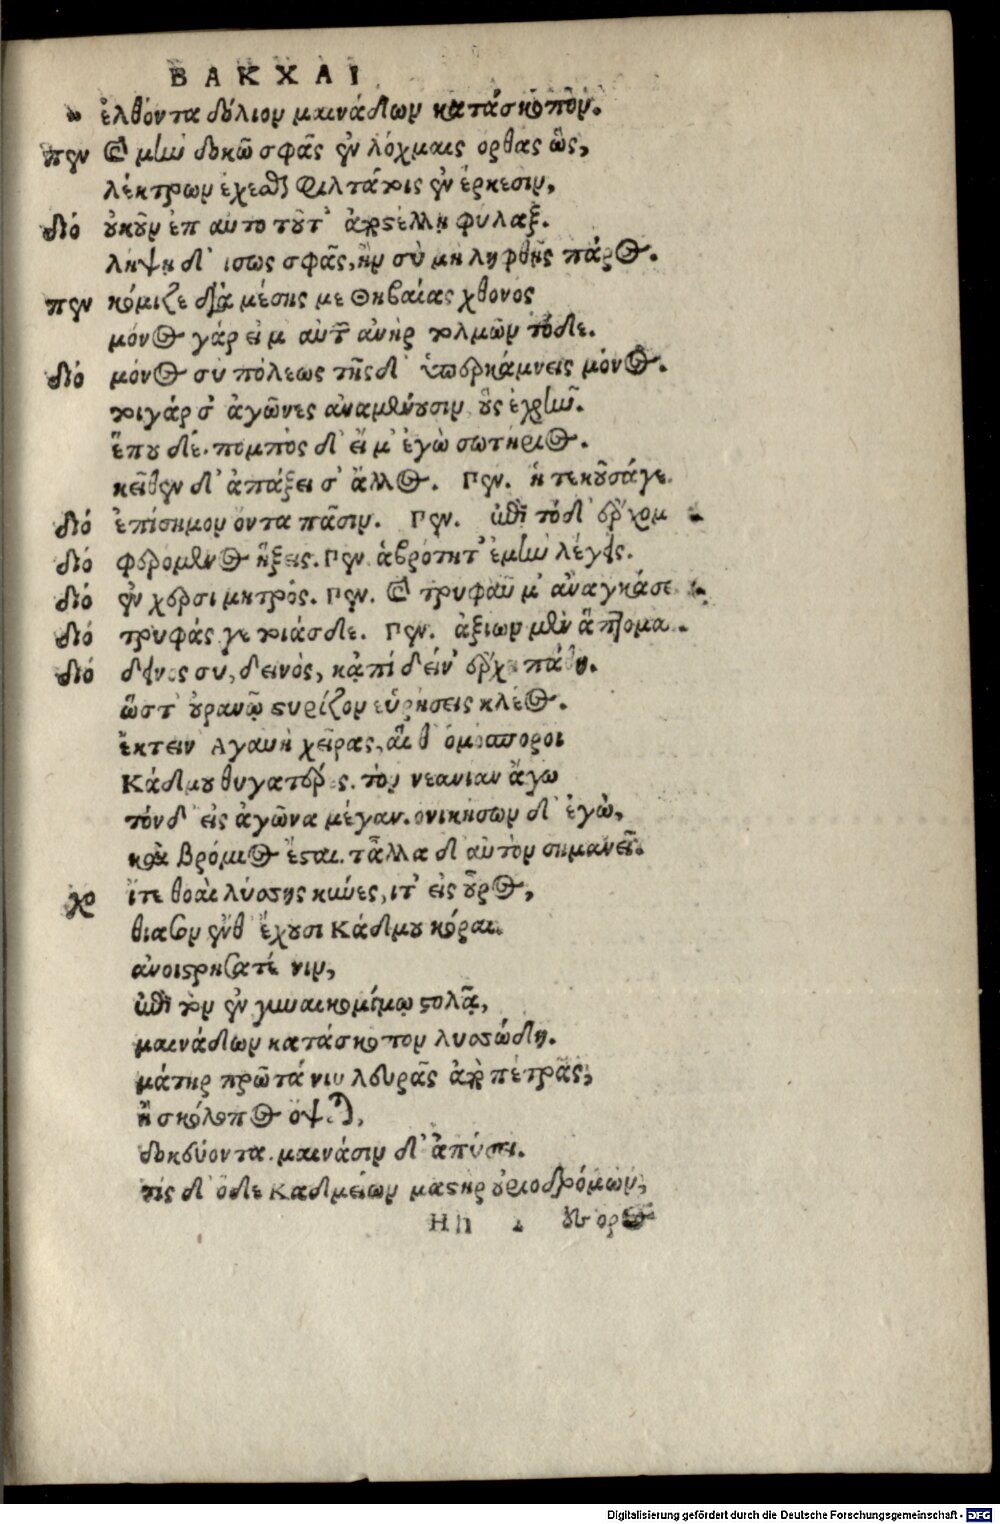 ΒΑΚΧΑΙ
ἐλθόντα δόλιον μαινάδων κατάσκοπον.
πεν καὶ μὴν δοκῶ σφᾶς ἐν λόχμαις ορθας ὣς,
λέκτρων ἔχεσθαι φιλτάτοις ἐν ἕρκεσιν,
διό οὐκοῦν ἐπ αυτο τοῦτ' ἀποστέλλῃ φυλαξ.
λήψῃ δ' ισως σφᾶς, ἢν σὺ μὴ ληφθῇς πάρος.
πεν κόμιζε διὰ μέσης με Θηβαίας χθονός
μόνος γάρ εἰμ αὐτῶν ἀνὴρ τολμῶν τόδε.
διό μόνος συ πόλεως τῆςδ' ὑπερκάμνεις μόνος.
τοιγάρ σ' ἀγῶνες ἀναμένουσιν οὓς ἐχρῆν.
ἕπου δέ. πομπὸς δ' εἶμ' ἐγὼ σωτήριος.
κεῖθεν δ' ἀπάξει σ' ἄλλος. Πεν. ἡ τεκοῦσάγε.
διό ἐπίσημον όντα πᾶσιν. Πεν. ἐπὶ τόδ' ἔρχομ
διό φερομενος ἥξεις. Πεν. ἁβρότητ' ἐμὴν λέγεις.
διό ἐν χερσι μητρός. Πεν. καὶ τρυφᾶν μ' ἀναγκάσε
διό τρυφάς γε τοιάσδε. Πεν. ἀξίων μὲν ἅπτομα
διό δεινος συ, δεινὸς, κἀπὶ δείν' ἔρχη πάθη.
ὥστ' οὐρανῷ στηρίζον εὑρήσεις κλέος.
ἔκτειν' Αγαυὴ χεῖρας, αἵ θ' ὁμόσποροι
Κάδμου θυγατέρες. τὸν νεανίαν ἄγω
τόνδ' εἰς ἀγῶνα μέγαν. ονικήσων δ' ἐγὼ,
καὶ Βρόμιος ἔσται. τἆλλα δ' αὐτὸν σημανεῖ.
χο ἴτε θοαὶ λύσσης κύνες, ιτ' εἰς οὖρος,
θιασον ἔνθ' ἔχουσι Κάδμου κόραι.
ἀνοιστρήσατέ νιν,
ἐπὶ τὸν ἐν γυναικομίμῳ στολᾷ,
μαινάδων κατάσκοπον λυσσώδη.
μάτηρ πρῶτά νιν λευρᾶς ἀπὸ πέτρας,
ἢ σκόλοπος ὄψεται,
δοκεύοντα. μαινάσιν δ' ἀπύσει.
τίς δ' ὅδε Καδμείων μαστὴρ οὐριοδρόμων,
Ηh ουρος
Digitalisierung gefördert durch die Deutsche Forschungsgemeinschaft - DFG